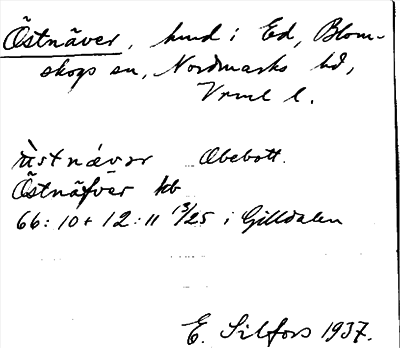 Östnäver, hmd i Ed, Blom-
skogs sn, Nordmarks hd,
Vrml l.
östnávar Obebott.
Östnäfver kb
66:10 + 12:11 13/25 i Gilldalen
E. Silfors 1937.